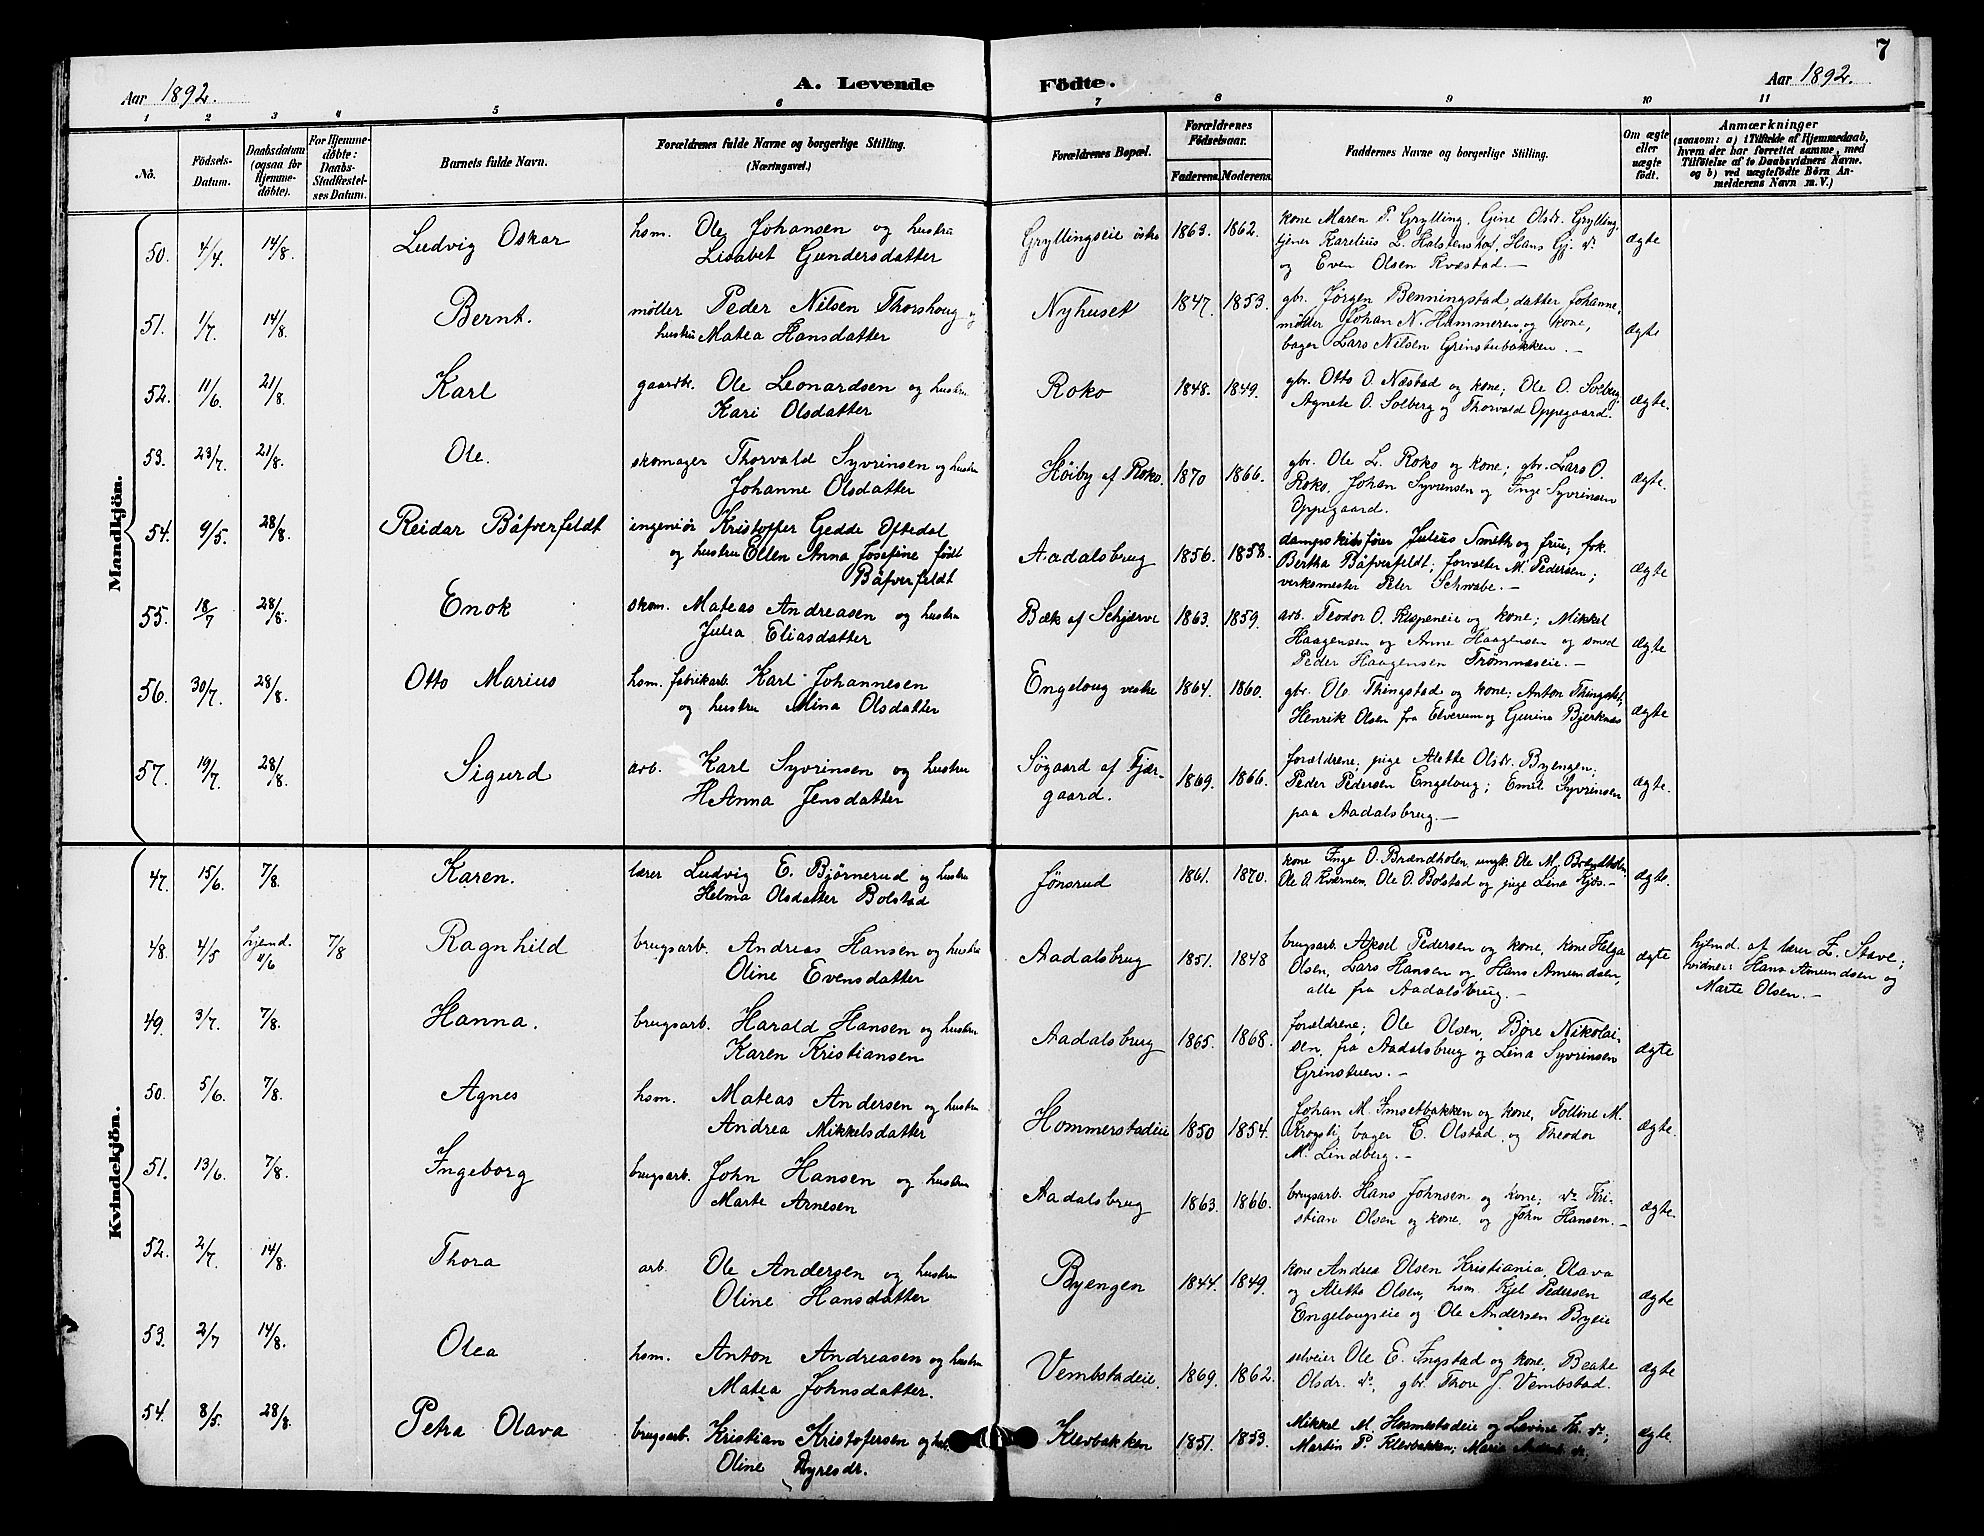 7
Aar 1892.
A. Levende Födte.
Aar 1892.
1 2 3 4 5 6 7 8 9 10 11
No.
Födsels-Datum.
Daabsdatum (ogsaa for Hjemme-döbte).
For Hjemme-döbte: Daabs-Stadfæstel-ses Datum.
Barnets fulde Navn.
Forældrenes fulde Navne og borgerlige Stilling. (Næringsvei.)
Forældrenes Bopæl.
Forældrenes Födselsaar.
Faderens. Moderens.
Faddernes Navne og borgerlige Stilling.
Om ægte eller uægte födt.
Anmærkninger
(saasom: a) i Tilfælde af Hjemmedaab,
hvem der har forrettet samme, med
Tilföielse af to Daabsvidners Navne.
og b) ved uægtefödte Börn An-
melderens Navn m. V.)
Mandkjön.
50. 4/4. 14/8. Ludvig Oskar
hsm. Ole Johansen og hustru
Lisabet Gundersdatter
Gryllingseie östre 1863. 1862.
kone Maren P. Grylling. Gine Olsdr. Grylling,
tjener Karelius L. Halstenshof, Hans Gj. do
og Even Olsen Kvæstad. —
ægte
51. 1/7. 14/8. Bernt.
møller Peder Nilsen Thorshoug og
hustru Matea Hansdatter
Nyhuset 1847. 1853.
gbr. Jørgen Benningstad, datter Johanne,
møller Johan N. Hammeren og kone,
bager Lars Nilsen Grinstubakken. —
ægte
52. 11/6. 21/8. Karl
gaardbr. Ole Leonardsen og hustru
Kari Olsdatter
Roko 1848. 1849.
gbr. Otto O. Næstad og kone; Ole O. Solberg,
Agnete O. Solberg og Thorvald Oppegaard.
ægte.
53. 23/7. 21/8. Ole.
skomager Thorvald Syvrinsen og hustru
Johanne Olsdatter
Høiby af Roko. 1870 1866.
gbr. Ole L. Roko og kone; gbr. Lars O.
Roko, Johan Syvrensen og Inge Syvrinsen
Oppegaard.
ægte.
54. 9/5. 28/8. Reidar Båfverfeldt
ingeniør Kristoffer Gedde Oftedal
og hustru Ellen Anna Josefine født
Båfverfeldt
Aadalsbrug 1856. 1858.
dampskibsfører Julius Smith og frue; frk.
Bertha Båfverfeldt; forvalter M. Pedersen;
verksmester Peter Schwabe. —
ægte
55. 18/7 28/8. Enok
skom. Mateas Andreasen og hustru
Julia Eliasdatter
Bæk af Schjerve 1863. 1859.
arb. Teodor O. Kispeneie og kone; Mikkel
Haagensen og Anne Haagensen og smed
Peder Haagensen Trømnæseie. —
ægte
56. 30/7. 28/8. Otto Marius
hsm. fabrikarb. Karl Johannesen
og hustru Mina Olsdatter
Engeloug vestre 1864. 1860.
gbr. Ole Thingstad og kone; Anton Thingstad;
Henrik Olsen fra Elverum og Gurina Bjerknæs
ægte
57. 19/7. 28/8 Sigurd
arb. Karl Syvrinsen og hustru
Hanna Jensdatter
Søgaard af Fjær-
gaard. 1869. 1866.
forældrene; pige Alette Olsdr. Byengen;
Peder Pedersen Engeloug; Emil Syvrinsen
paa Aadalsbrug. —
ægte.
Kvindekjön.
47. 15/6. 7/8. Karen.
lærer Ludvig E. Bjørnerud og hustru
Helma Olsdatter Bolstad
Jønsrud 1861. 1870.
kone Inge O. Brændholen, ungk. Ole M. Brændholen.
Ole A. Kværnen, Ole O. Bolstad og pige Lina Kjøs. —
ægte.
48. 4/5 hjemd. 11/6 7/8 Ragnhild
brugsarb. Andreas Hansen og hustru
Oline Evensdatter
Aadalsbrug 1851. 1848
brugsarb. Aksel Pedersen og kone, kone Helga
Olsen, Lars Hansen og Hans Amundsen,
alle fra Aadalsbrug. —
ægte
hjemd. af lærer E. Stave;
vidner: Hans Amundsen og
Marte Olsen. —
49. 3/7. 7/8. Hanna.
brugsarb. Harald Hansen og hustru
Karen Kristiansen
Aadalsbrug 1865. 1868.
forældrene; Ole Olsen, Børe Nikolai-
sen, fra Aadalsbrug og Lina Syvrinsen
Grinstuen. —
ægte
50. 5/6. 7/8. Agnes
hsm. Mateas Andersen og hustru
Andrea Mikkelsdatter
Hommerstadeie 1850 1854.
Johan M. Imsetbakken og kone, Polline M.
Krogsti, bager E. Olstad, og Theodor
M. Lindberg. —
ægte.
51. 13/6. 7/8. Ingeborg
brugsarb. John Hansen og hustru
Marte Arnesen
Aadalsbrug 1863. 1866.
brugsarb. Hans Johnsen og kone; do Kri-
stian Olsen og kone og John Hansen. —
ægte.
52. 2/7. 14/8. Thora
arb. Ole Andersen og hustru
Oline Hansdatter
Byengen 1844. 1849.
kone Andrea Olsen Kristiania, Olava
og Alette Olsen, hsm Kjel Pedersen
Engelougseie og Ole Andersen Byeie
ægte
53. 2/7 14/8. Olea
hsm. Anton Andreasen og hustru
Matea Johnsdatter.
Vembstadeie. 1869. 1862.
selveier Ole E. Ingstad og kone, Beate
Olsdr. do, gbr. Thore J. Vembstad.
ægte
54. 8/5. 28/8. Petra Olava
brugsarb. Kristian Kristofersen og
Oline Byresdr.
Klevbakken 1851. 1853.
Mikkel M. Hommestadeie og Lovine Kr. do;
Martin P. Klevbakken; Marie do;
ægte.